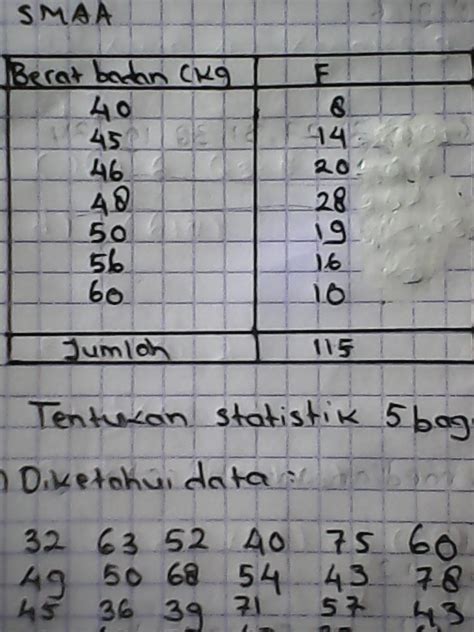 SMAA
Berat badan (kg F
40 8
45 14
46 20
48 28
50 19
56 16
60 10
Jumlah 115
Tentukan statistik 5 bag
Diketahui data :
32 63 52 40 75 60
49 50 68 54 43 78
45 36 39 71 57 43